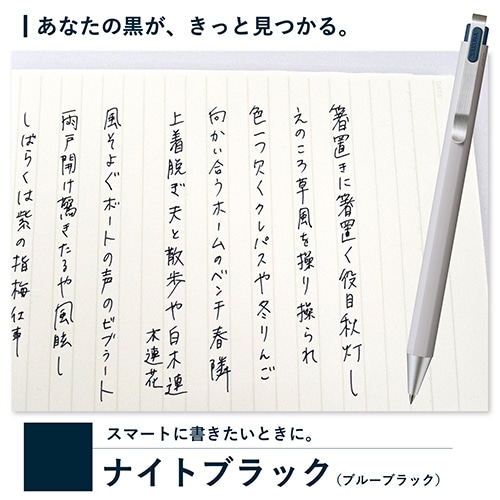 あなたの黒が、きっと見つかる。
箸置きに箸置く役目秋灯し
えのころ草風を操り操られ
色一つ欠くクレパスや冬りんご
向かい合うホームのベンチ春隣
上着脱ぎ夫と散歩や白木連
木蓮花
風そよぐボートの声のビブラート
雨戸開け篤きたるや風眩し
しばらくは紫の指梅仕事
スマートに書きたいときに。
ナイトブラック(ブルーブラック)